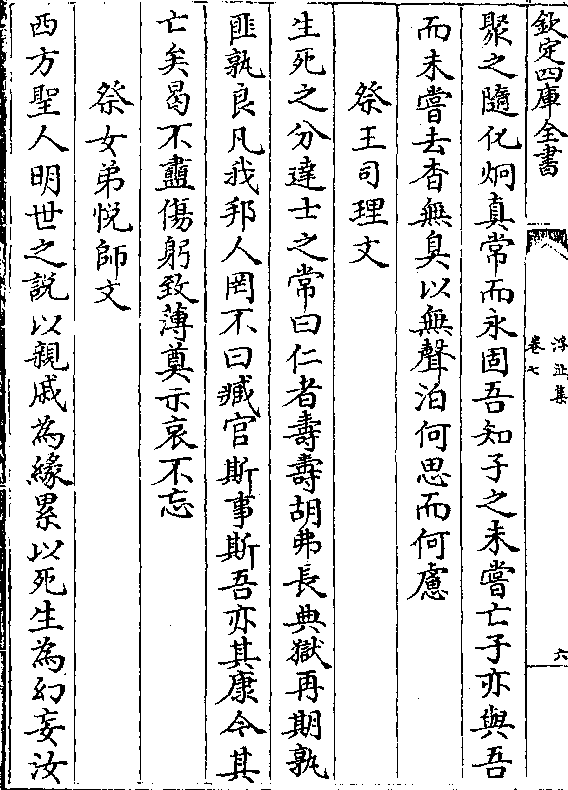 欽定四庫全書
浮沚集
卷七
六
聚之隨化炯真常而永固吾知子之未嘗亡子亦與吾
而未嘗去杳無臭以無聲泊何思而何慮
祭王司理文
生死之分達士之常曰仁者壽壽胡弗長典獄再期孰
匪孰良凡我邦人罔不曰臧官斯事斯吾亦其康今其
亡矣曷不衋傷躬致薄奠示哀不忘
祭女弟悅師文
西方聖人明世之說以親戚為緣累以死生為幻妄汝